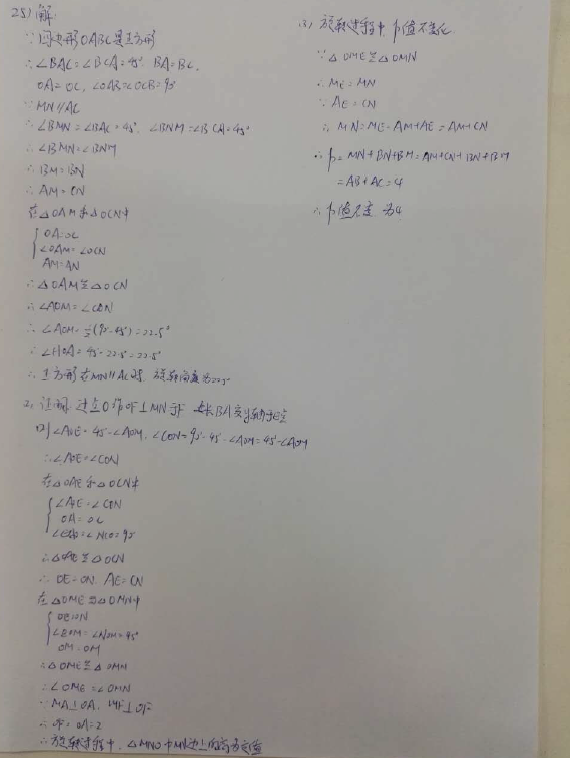 25) 解:
∵四边形OABC是正方形
∴∠BAC=∠BCA=45° BA=BC,
OA=OC, ∠OAB=∠OCB=90°
∵MN∥AC
∴∠BMN=∠BAC=45°, ∠BNM=∠BCA=45°
∴∠BMN=∠BNM
∴BM=BN
∴AM=CN
在△OAM和△OCN中
OA=OC
∠OAM=∠OCN
AM=AN
∴△OAM≌△OCN
∴∠AOM=∠CON
∴∠AOM=½(90°-45°)=22.5°
∴∠HOA=45°-22.5°=22.5°
∴正方形在MN∥AC时, 旋转角度为22.5°
2, 证明 过点O作OF⊥MN于F 延长BA交y轴于E点
则∠AOE=45°-∠AOM, ∠CON=90°-45°-∠AOM=45°-∠AOM
∴∠AOE=∠CON
在△OAE和△OCN中
∠AOE=∠CON
OA=OC
∠EAO=∠NCO=90°
∴△OAE≌△OCN
∴OE=ON, AE=CN
在△OME和△OMN中
OE=ON
∠EOM=∠NOM=45°
OM=OM
∴△OME≌△OMN
∴∠OME=∠OMN
∵MA⊥OA, MF⊥OF
∴OF=OA=2
∴旋转过程中, △MNO中MN边上的高为定值
(3) 旋转过程中, p值不变化
∵△OME≌△OMN
∴ME=MN
∵AE=CN
∴MN=ME=AM+AE=AM+CN
∴p=MN+BN+BM=AM+CN+BN+BM
=AB+AC=4
∴p值不变 为4